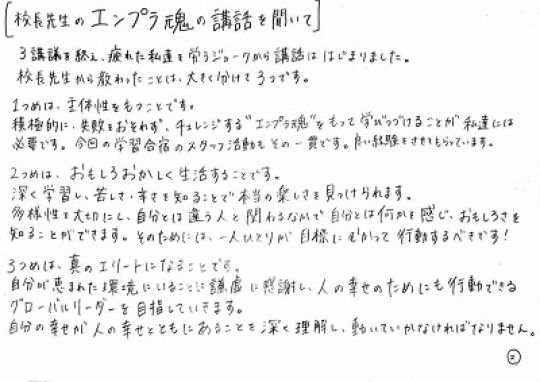 [校長先生のエンプラ魂の講話を聞いて]
3講議を終え、疲れた私達を労うジョークから講話は はじまりました。
校長先生から教わったことは、大きく分けて3つです。
1つめは、主体性をもつことです。
積極的に、失敗をおそれず、チェレンジする"エンプラ魂"をもって学びつづけることが私達には
必要です。今回の学習合宿のスタッフ活動もその一貫です。良い経験をさせてもらっています。
2つめは、おもしろおかしく生活することです。
深く学習し、苦しさ・辛さを知ることで本当の楽しさを見つけられます。
多様性を大切にし、自分とは違う人と関わるなかで自分とは何かを感じ、おもしろさを
知ることができます。そのためには、一人ひとりが目標にむかって行動するべきです!
3つめは、真のエリートになることです。
自分が恵まれた環境にいることに謙虚に感謝し、人の幸せのためにも行動できる
グローバルリーダーを目指していきます。
自分の幸せが人の幸せとともにあることを深く理解し、動いていかなければなりません。
②